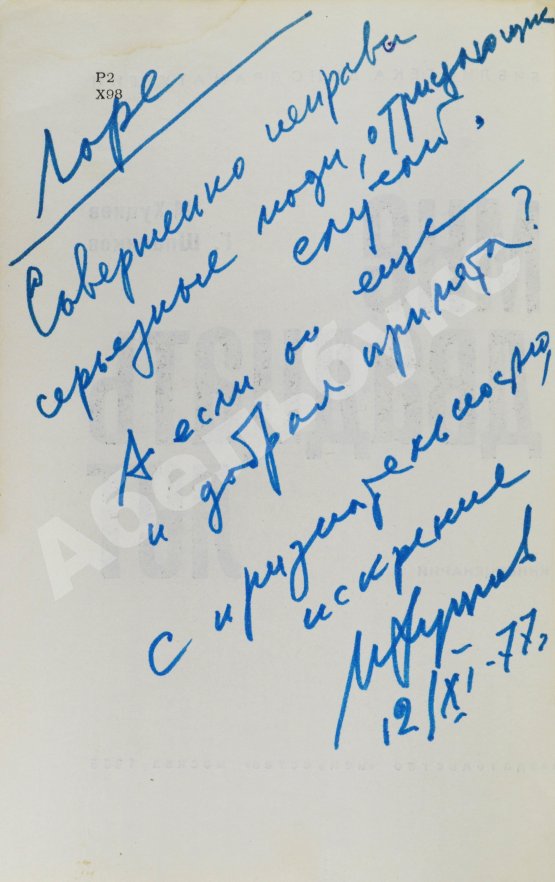 Р2
Х98
Лоре
Совершенно неправы
серьезные люди, отрицающие
случай.
А если он еще
и добрая примета?
С признательностью,
искренне
МХуциев
12/XI-77,
Абельбукс